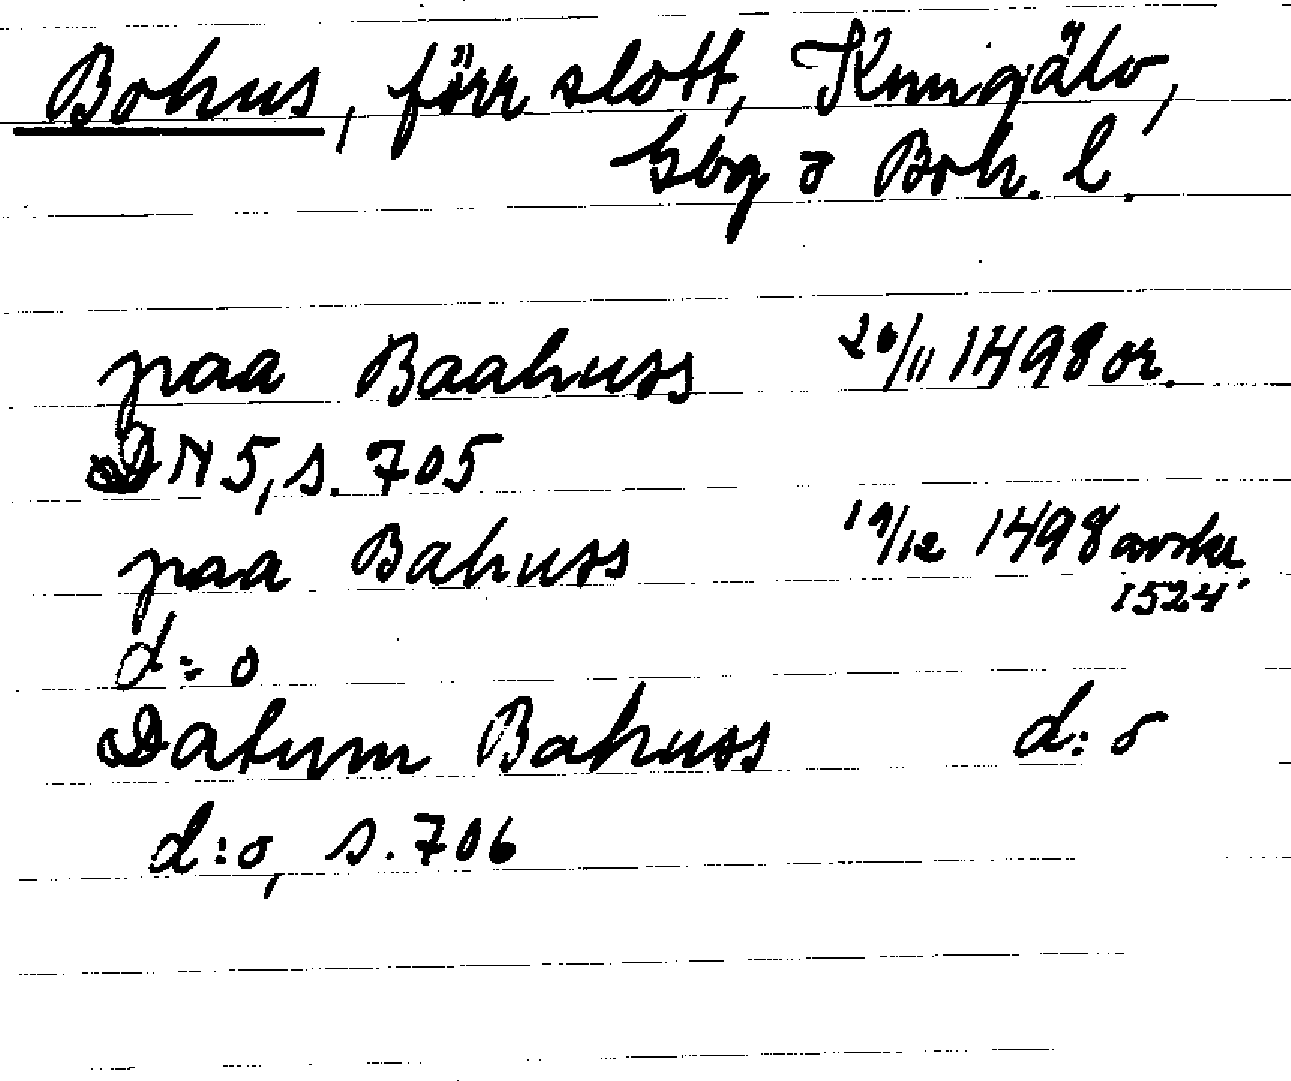 Bohus, förr slott, Kungälv,
Gbg o Boh. l.
paa Baahuss 26/11 1498 or.
DN 5, s. 705
paa Bahuss 19/12 1498 avskr.
1524
d:o
Datum Bahuss d:o
d:o, s. 706